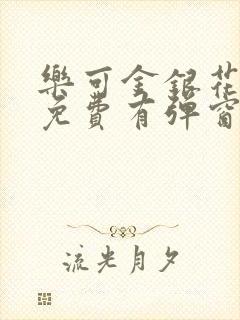 樂可金銀花
免費有彈窗
流光月夕